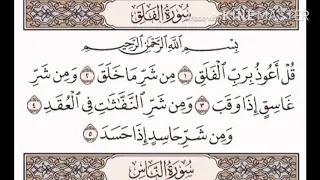 سُورَةُ الفَلَقِ
KINEMASTER
بِسْمِ اللَّهِ الرَّحْمَٰنِ الرَّحِيمِ
قُلْ أَعُوذُ بِرَبِّ الْفَلَقِ ١ مِن شَرِّ مَا خَلَقَ ٢ وَمِن شَرِّ
غَاسِقٍ إِذَا وَقَبَ ٣ وَمِن شَرِّ النَّفَّاثَاتِ فِي الْعُقَدِ ٤
وَمِن شَرِّ حَاسِدٍ إِذَا حَسَدَ ٥
سُورَةُ النَّاسِ